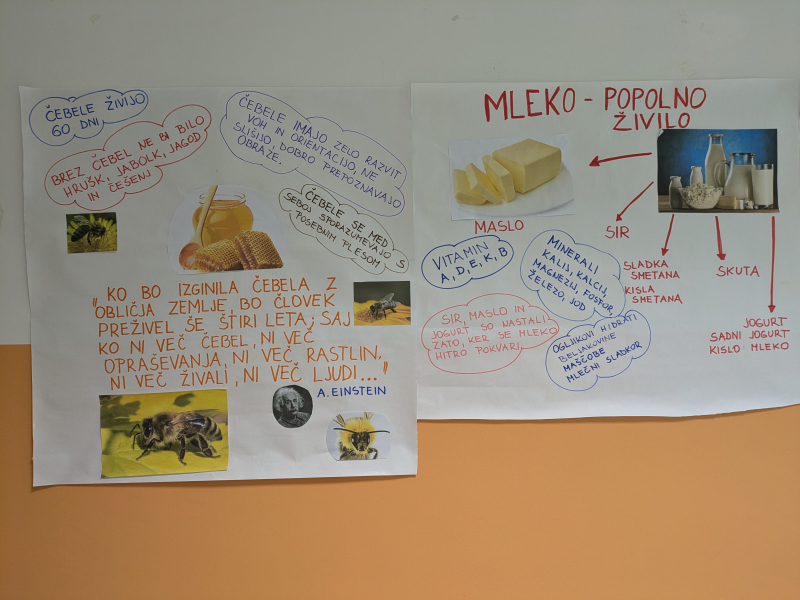 ČEBELE ŽIVIJO
60 DNI
BREZ ČEBEL NE BI BILO
HRUŠK, JABOLK, JAGOD
IN ČEŠENJ
ČEBELE IMAJO ZELO RAZVIT
VOH IN ORIENTACIJO, NE
SLIŠIJO, DOBRO PREPOZNAVAJO
OBRAZE.
ČEBELE SE MED
SEBOJ SPORAZUMEVAJO S
POSEBNIM PLESOM
"KO BO IZGINILA ČEBELA Z
OBLIČJA ZEMLJE, BO ČLOVEK
PREŽIVEL ŠE ŠTIRI LETA; SAJ
KO NI VEČ ČEBEL, NI VEČ
OPRAŠEVANJA, NI VEČ RASTLIN,
NI VEČ ŽIVALI, NI VEČ LJUDI..."
A. EINSTEIN
MLEKO - POPOLNO
ŽIVILO
MASLO
SIR
SLADKA
SMETANA
KISLA
SMETANA
SKUTA
JOGURT
SADNI JOGURT
KISLO MLEKO
VITAMIN
A, D, E, K, B
MINERALI
KALIJ, KALCIJ,
MAGNEZIJ, FOSFOR,
ŽELEZO, JOD
SIR, MASLO IN
JOGURT SO NASTALI
ZATO, KER SE MLEKO
HITRO POKVARI
OGLJIKOVI HIDRATI
BELJAKOVINE
MAŠČOBE
MLEČNI SLADKOR